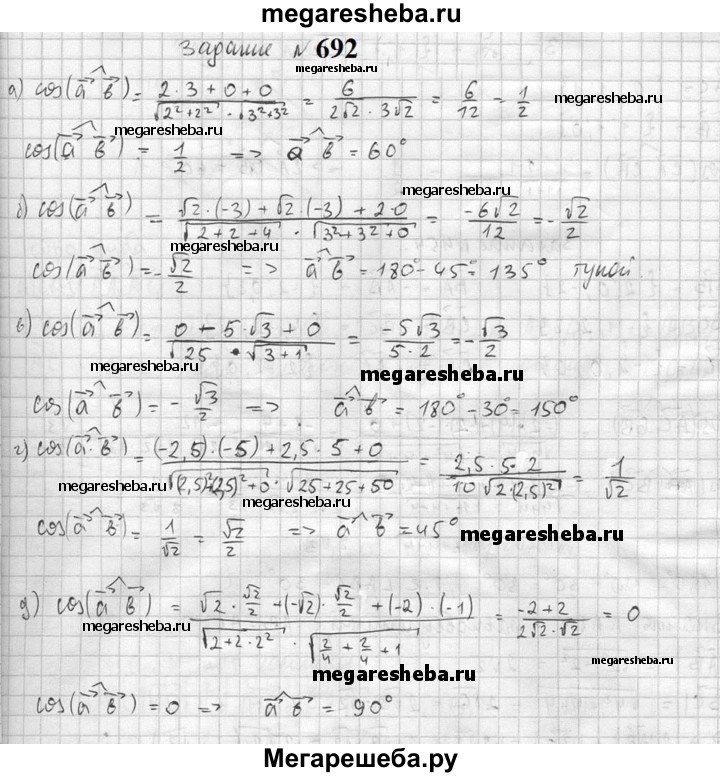 megaresheba.ru
Задание № 692
megaresheba.ru
а) cos(a⃗ ^ b⃗) = (2·3+0+0)/(√(2²+2²) · √(3²+3²)) = 6/(2√2 · 3√2) = 6/12 = 1/2
megaresheba.ru
megaresheba.ru
cos(a⃗ ^ b⃗) = 1/2 => a⃗ ^ b⃗ = 60°
megaresheba.ru
б) cos(a⃗ ^ b⃗) = (√2·(-3) + √2·(-3) + 2·0)/(√(2+2+4) · √(3²+3²+0)) = -6√2/12 = -√2/2
megaresheba.ru
cos(a⃗ ^ b⃗) = -√2/2 => a⃗ ^ b⃗ = 180° - 45° = 135° тупой
в) cos(a⃗ ^ b⃗) = (0 - 5·√3 + 0)/(√25 · √(3+1)) = -5√3/(5·2) = -√3/2
megaresheba.ru
megaresheba.ru
cos(a⃗ ^ b⃗) = -√3/2 => a⃗ ^ b⃗ = 180° - 30° = 150°
г) cos(a⃗ ^ b⃗) = ((-2,5)·(-5) + 2,5·5 + 0)/(√((2,5)²+(2,5)²+0) · √(25+25+50)) = (2,5·5·2)/(10√(2·(2,5)²)) = 1/√2
megaresheba.ru
cos(a⃗ ^ b⃗) = 1/√2 = √2/2 => a⃗ ^ b⃗ = 45°
megaresheba.ru
д) cos(a⃗ ^ b⃗) = (√2 · √2/2 + (-√2) · √2/2 + (-2)·(-1))/(√(2+2·2²) · √(2/4 + 2/4 + 1)) = (-2+2)/(2√2 · √2) = 0
megaresheba.ru
megaresheba.ru
cos(a⃗ ^ b⃗) = 0 => a⃗ ^ b⃗ = 90°
Мегарешеба.ру